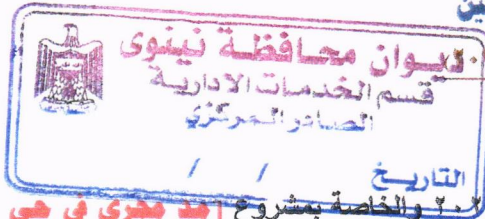 ين
ديوان محافظة نينوى
قسم الخدمات الادارية
الصادر المركزي
التاريخ / /
والخاصة بمشروع
في حي